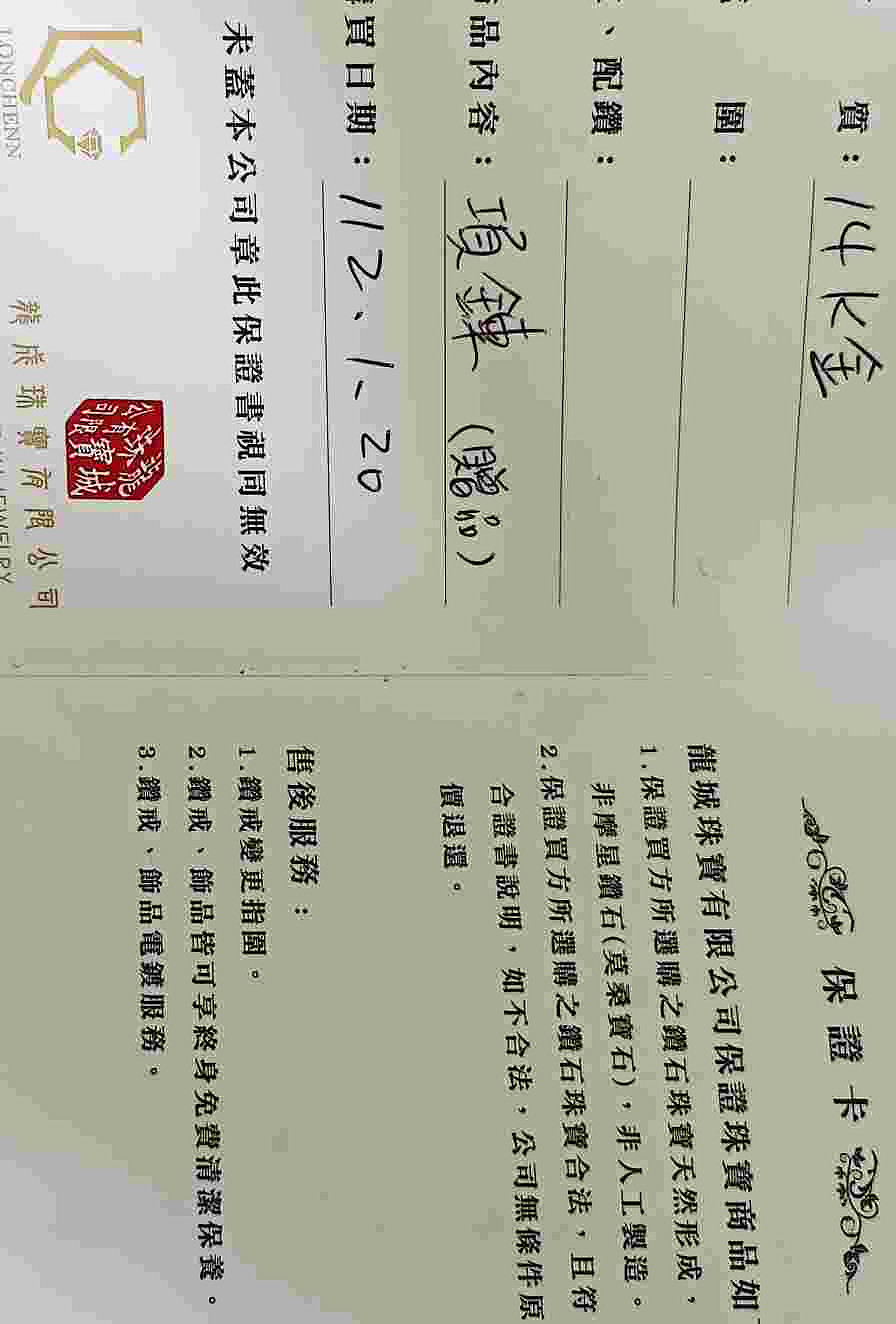 質：14K金
圍：
、配鑽：
品內容：項鍊（贈品）
買日期：112、1、20
未蓋本公司章此保證書視同無效
LONCHENN
龍城珠寶有限公司
龍城珠寶有限公司
JEWELRY
保證卡
龍城珠寶有限公司保證珠寶商品如
1.保證買方所選購之鑽石珠寶天然形成，
非摩星鑽石(莫桑寶石)，非人工製造。
2.保證買方所選購之鑽石珠寶合法，且符
合證書說明，如不合法，公司無條件原
價退還。
售後服務：
1.鑽戒變更指圍。
2.鑽戒、飾品皆可享終身免費清潔保養。
3.鑽戒、飾品電鍍服務。